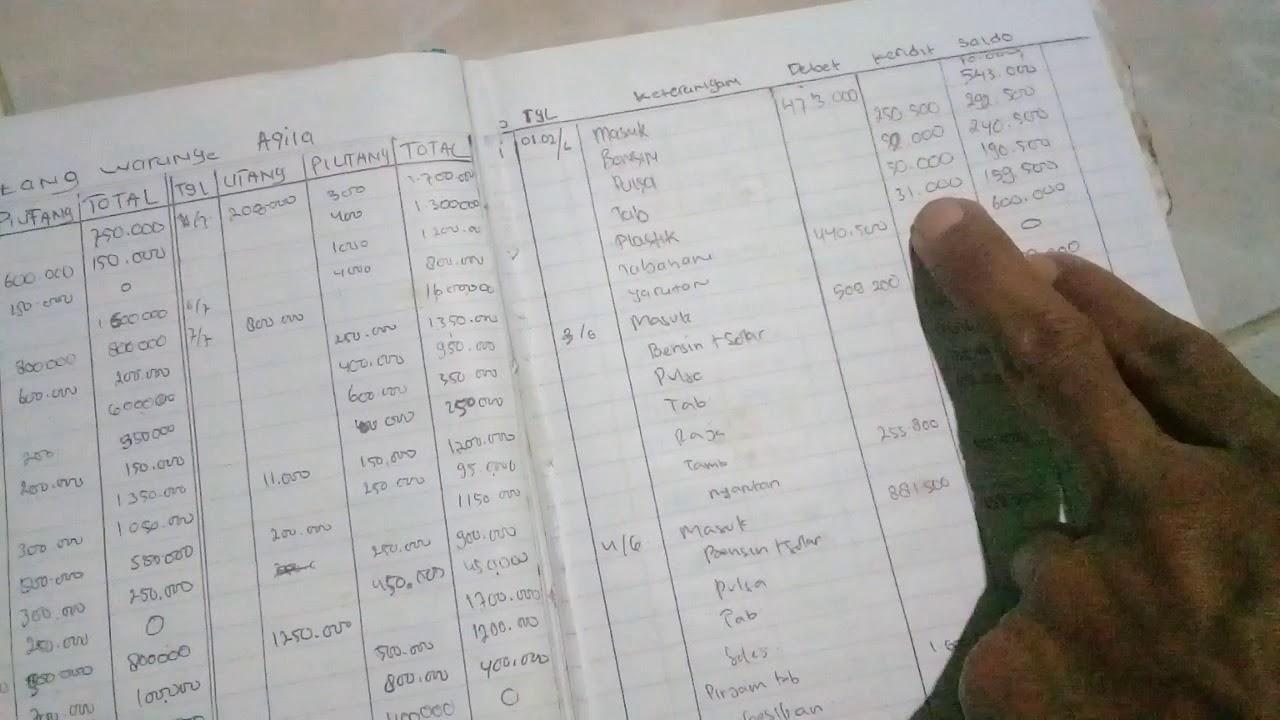 tang warunge Aqila
PIUTANG TOTAL TGL UTANG PIUTANG TOTAL
750.000 208.000 300 1.700.000
600.000 150.000 400 1.300.000
150.000 0 1000 1.200.00
1600000 6/7 4000 800.000
800000 800.000 7/7 800.000 1600.000
600.000 200.000 250.000 1350.000
600000 400.000 950.000
200 950000 600.000 350.000
200.000 150.000 250000
1350.000 11.000 150.000 1200.000
300.000 1050.000 250.000 95.000
500.000 550000 200.000 1150.000
300.000 250.000 250.000 900.000
250.000 0 450.000 450.000
800000 1250.000 1700.000
100.000 500.000 1200.000
800.000 400.000
400000 0
TGL Keterangan Debet Kendit Saldo
01.02/6 Masuk 473.000 543.000
Bensin 250.500 292.500
Pulsa 240.500
Tab 50.000 190.500
Plastik 31.000 159.500
Tabanan 440.500 600.000
0
3/6 Masuk 509.200
Bensin + Solar
Pulsa
Tab
255.800
4/6 Masuk 881.500
Bensin + Solar
Pulsa
Tab
Sales
Pinjam tab